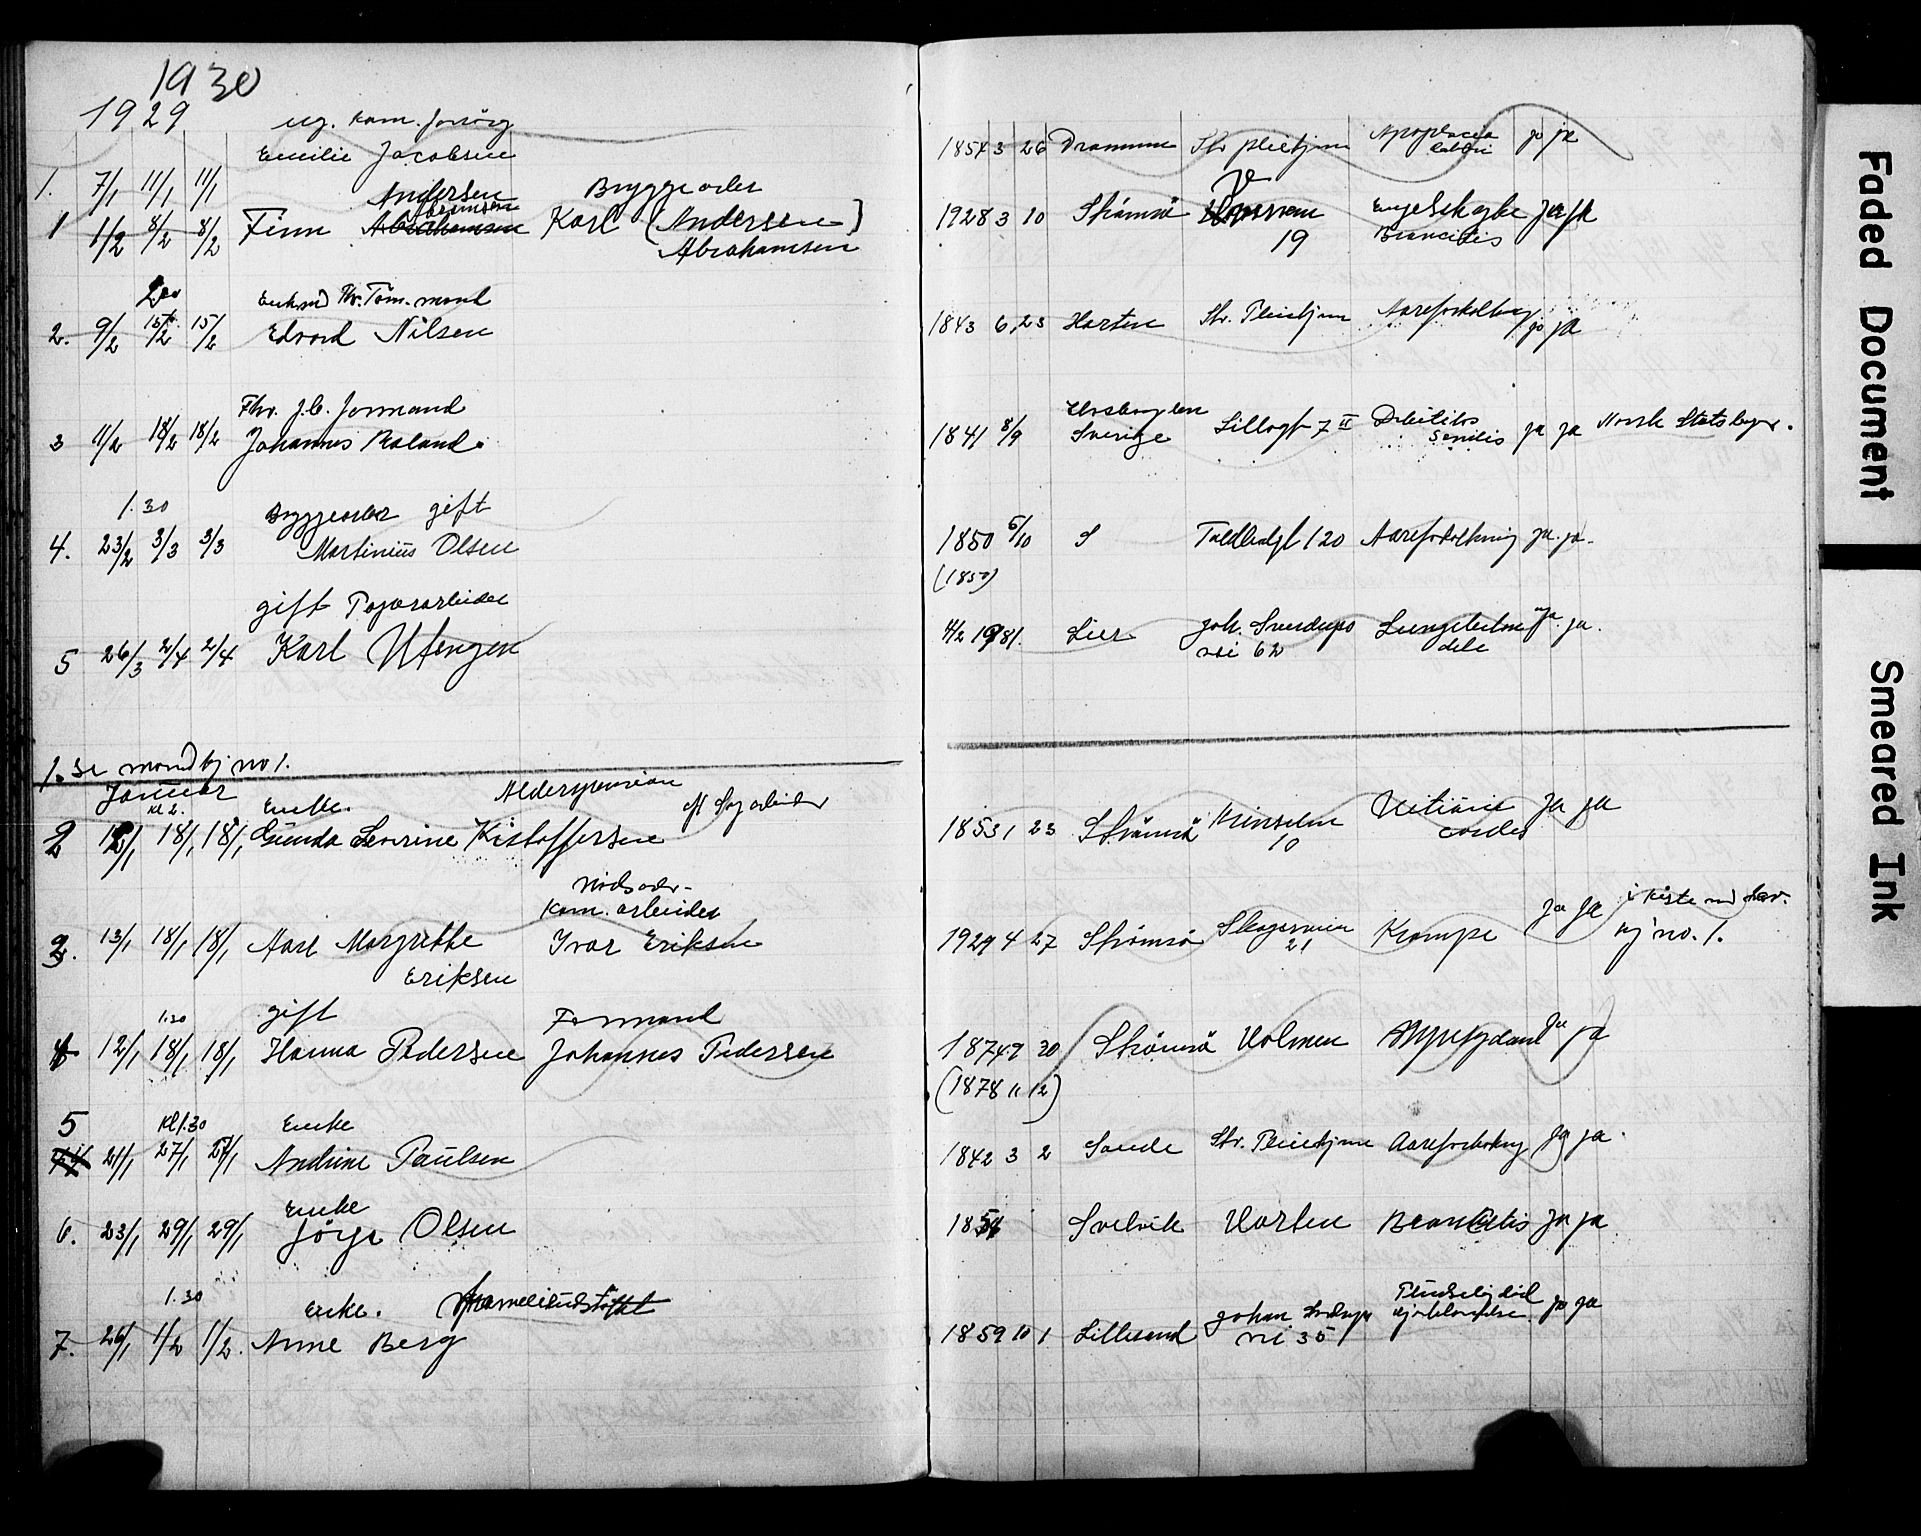 1930
1929
ug. kom. forsörg
Emilie Jacobsen
1. 7/1 11/1 11/1
1854 3 26 Drammen Str. pleiehjem ja ja
Andersen Bryggearb
1 1/2 8/2 8/2 Finn Abrahamsen Karl (Andersen)
Abrahamsen
1928 3 10 Strømsø 19 Engelsk syke Broncitis ja ja
200 Enkem. Fhv. Töm. mand
2. 9/2 15/2 15/2 Edvard Nilsen
1843 6 23 Hurten Str. Pleiehjem Aareforkalkning ja ja
Fhv. J.b. formand
3 11/2 18/2 18/2 Johannes Roland.
1841 8/9 Sverige Lillogt 7 II Debilitas senilis ja ja Norsk Statsborger.
1.30 Bryggearb gift
4. 23/2 3/3 3/3 Martinius Olsen
1850 5/10 S Toldbodgt 120 Aareforkalkning ja. ja.
(1850)
gift Papirarbeider
5 26/3 2/4 2/4 Karl Utengen
4/2 1981. Lier Joh. Sverdrups vei 62 Lungebetændelse ja. ja.
1. Se mandkj no 1.
Januar
Kl 2. Enke. Alderspension af Sagarbeider
2 12/1 18/1 18/1 Gunda Severine Kristoffersen
1853 1 23 Strømsø 10 Vitium cordis ja ja
Nödsarb.-
Kom. arbeider
3. 13/1 18/1 18/1 Aase Margrethe Ivar Eriksen
Eriksen
1929 4 27 Strømsø Skogerveien 21 Krampe ja ja i kiste m kv.
kj no. 1.
1.30 gift Formand
4 12/1 18/1 18/1 Hanna Pedersen Johannes Pedersen
1874 9 30 Strømsø Holmen ja ja
(1878 11 12)
5 Kl 1.30 Enke
21/1 27/1 27/1 Andrine Paulsen
1842 3 2 Sande Str. Pleiehjem Aareforkalkning ja ja.
Enke
6. 23/1 29/1 29/1 Jörge Olsen
1854 Svelvik Horten Broncitis ja ja
1.30 Enke.
7. 26/1 1/2 1/2. Anne Berg
1859 10 1 Lillesand Johan Sverdrups vei 35 Pludselig död hjertelammelse ja ja
Faded Document
Smeared Ink